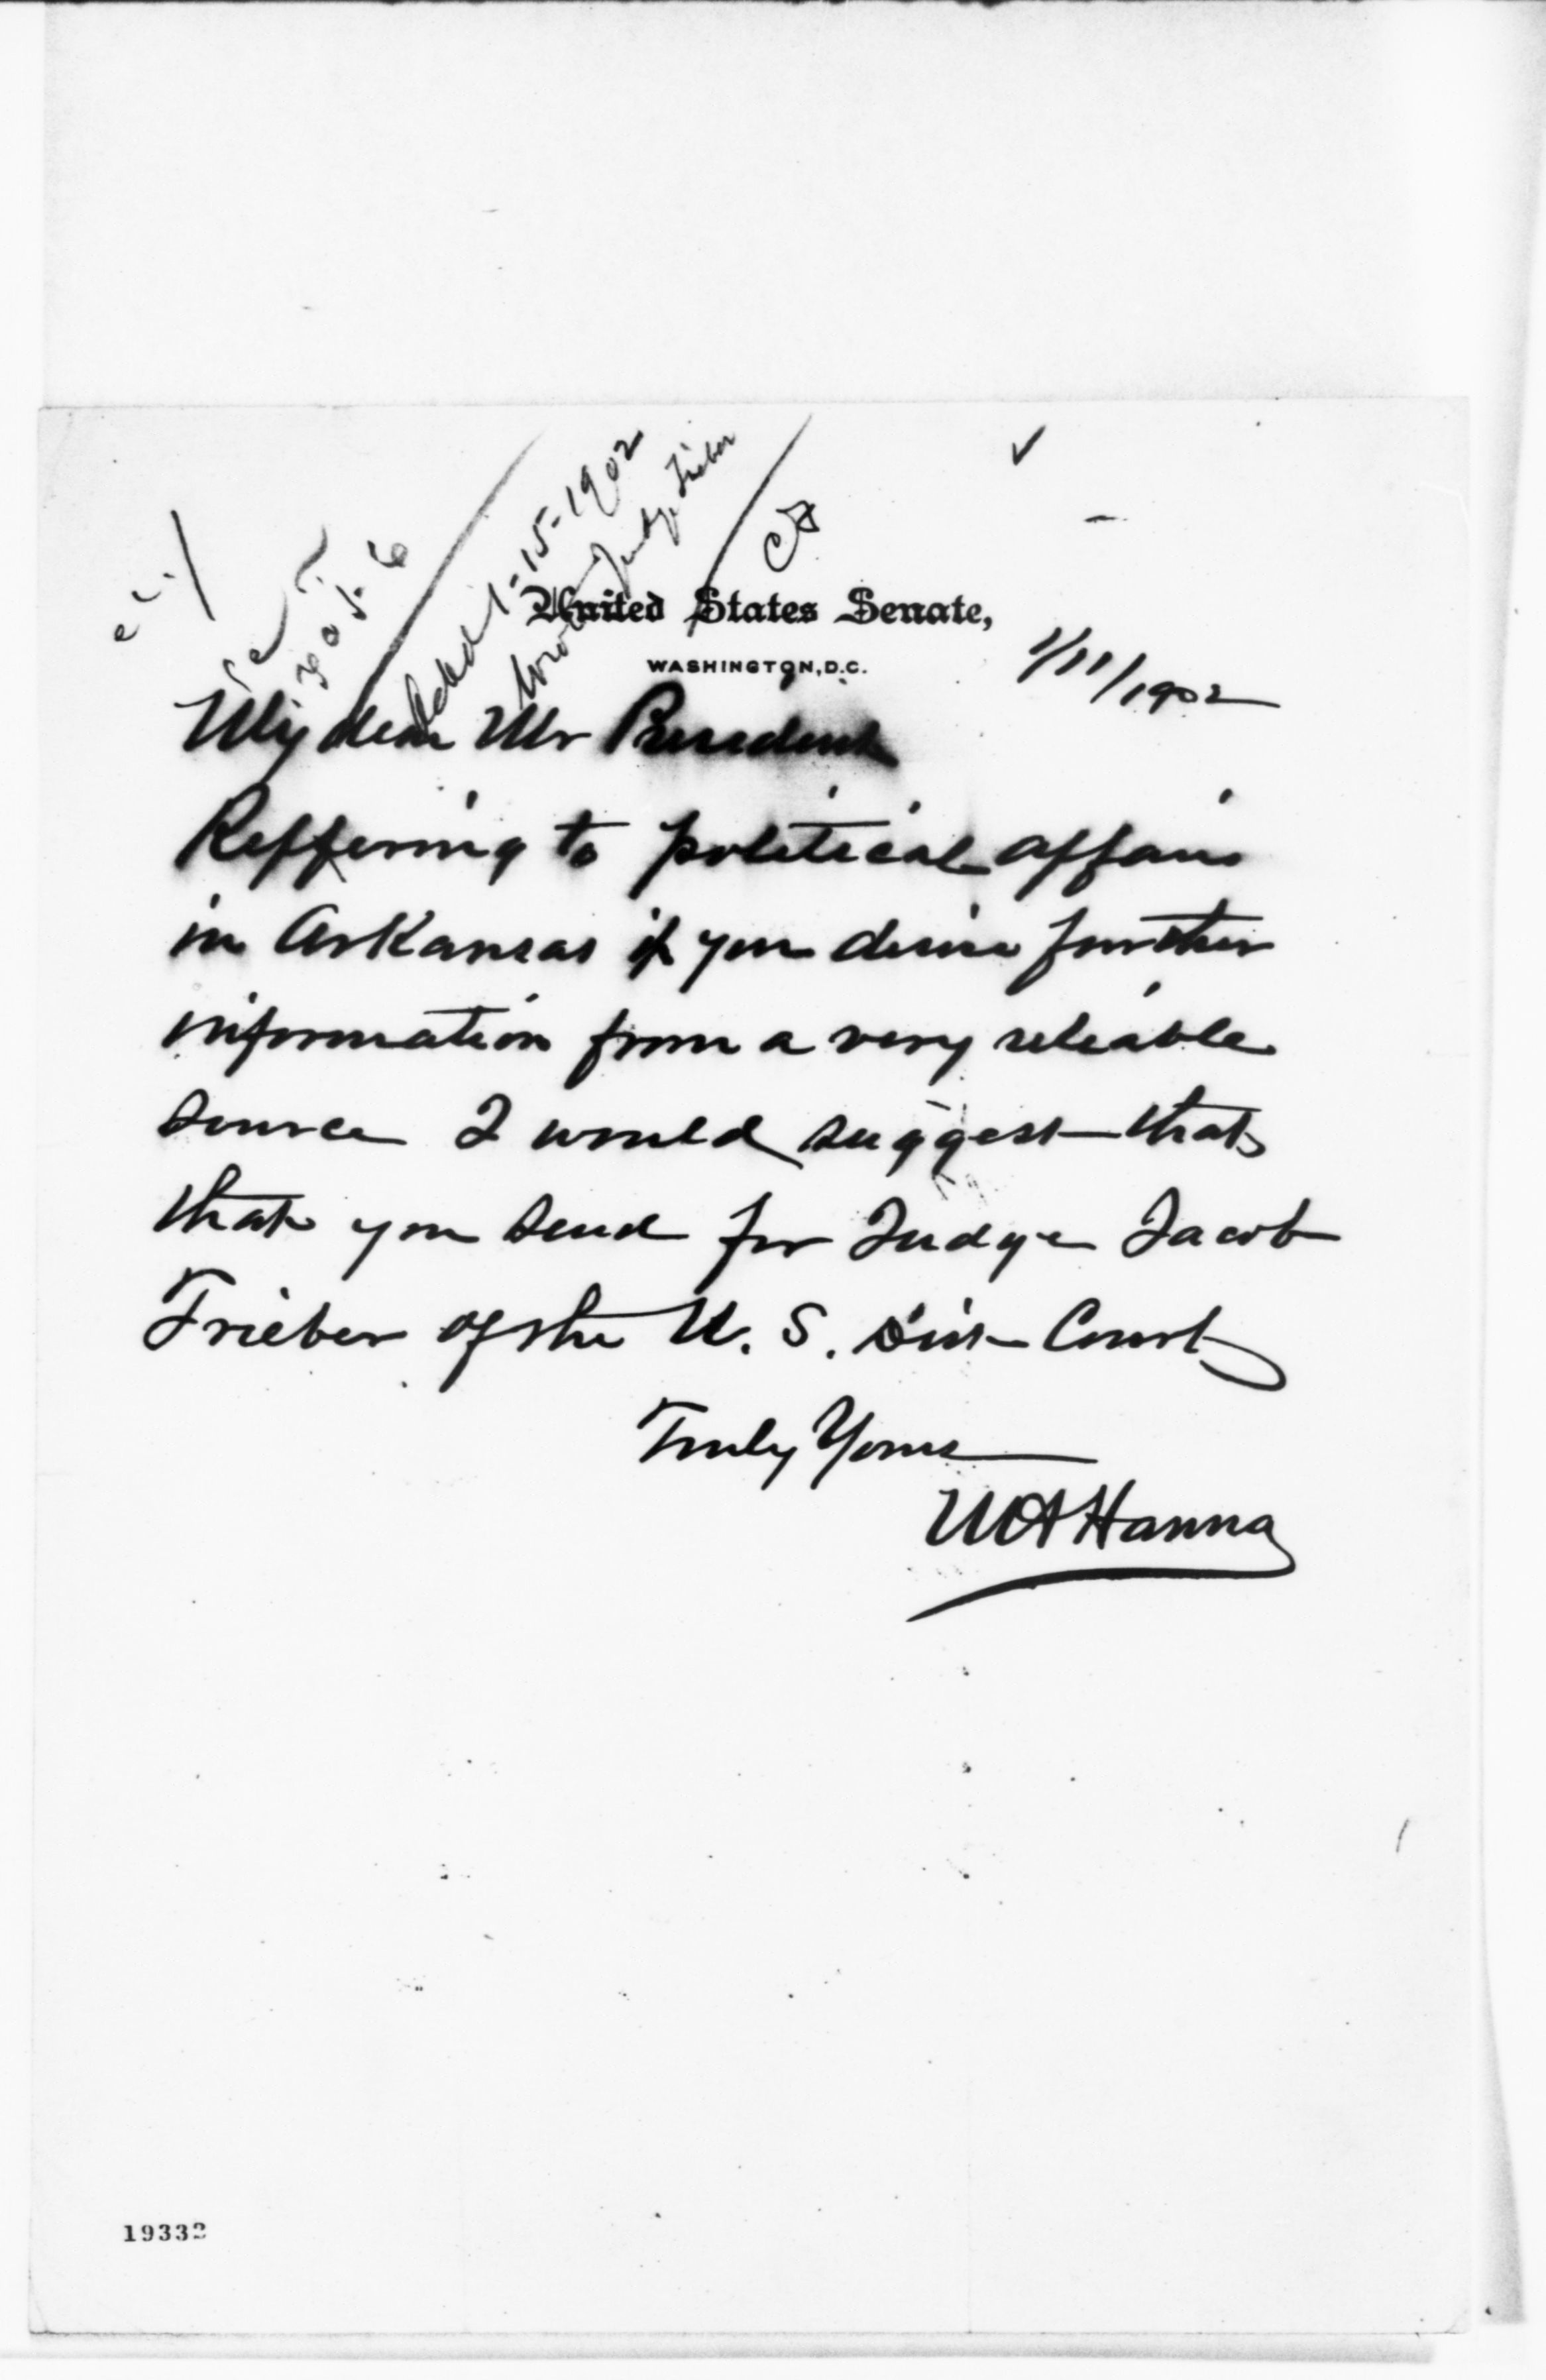 Ackd 1-15-1902
Wrote Judge Trieber
United States Senate,
WASHINGTON, D.C.
1/11/1902
My dear Mr President
Reffering to political affairs
in Arkansas if you desire further
information from a very reliable
source I would suggest that
that you send for Judge Jacob
Trieber of the U. S. Dist Court
Truly Yours
MAHanna
19332